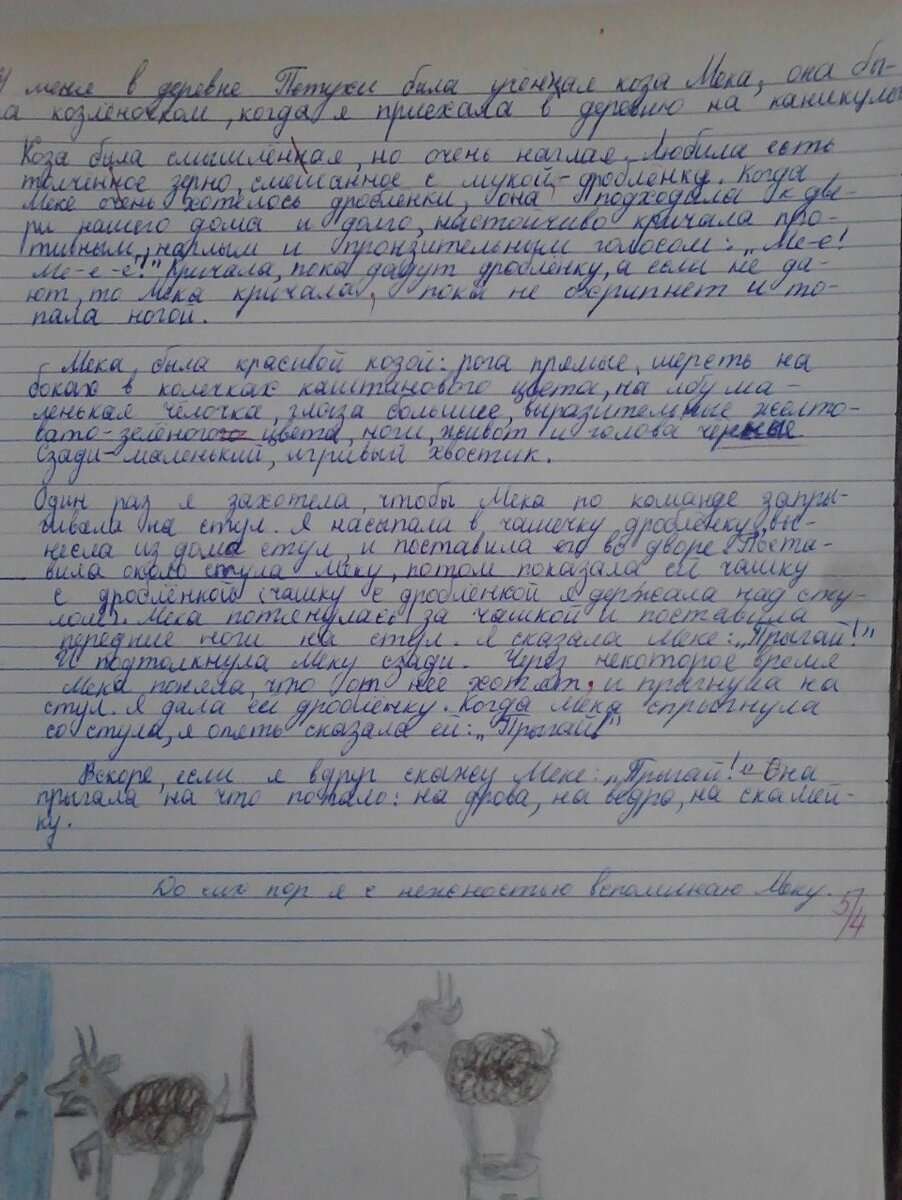 У меня в деревне Петухи была учённая коза Мека, она бы-
а козлёночком, когда я приехала в деревню на каникулы
Коза была смышлённая, но очень наглая. Любила есть
толчённое зерно, смешанное с мукой, - дроблёнку. Когда
Меке очень хотелось дроблёнки, она подходила к две-
ри нашего дома и долго, настойчиво кричала про-
тивным, наглым и пронзительным голосом: „Ме-е!
Ме-е-е!" Кричала, пока дадут дроблёнку, а если не да-
ют, то Мека кричала, пока не охрипнет и то-
пала ногой.
Мека была красивой козой: рога прямые, шерсть на
боках в колечках каштанового цвета, на лбу ма-
ленькая чёлочка, глаза большие, выразительные желто-
вато-зелёного цвета, ноги, живот и голова черные
Сзади-маленький, игривый хвостик.
Один раз я захотела, чтобы Мека по команде запры-
гивала на стул. Я насыпала в чашечку дроблёнку, вы-
несла из дома стул, и поставила его во дворе. Поста-
вила около стула Меку, потом показала ей чашку
с дроблёнкой (чашку с дроблёнкой я держала над сту-
лом). Мека потянулась за чашкой и поставила
передние ноги на стул. Я сказала Меке: „Прыгай!"
И подтолкнула Меку сзади. Через некоторое время
Мека поняла, что от неё хотят, и прыгнула на
стул. Я дала ей дроблёнку. Когда Мека спрыгнула
со стула, я опять сказала ей: „Прыгай!"
Вскоре, если я вдруг скажу Меке: „Прыгай!" - Она
прыгала на что попало: на дрова, на ведро, на скамей-
ку.
До сих пор я с нежностью вспоминаю Меку.
5/4